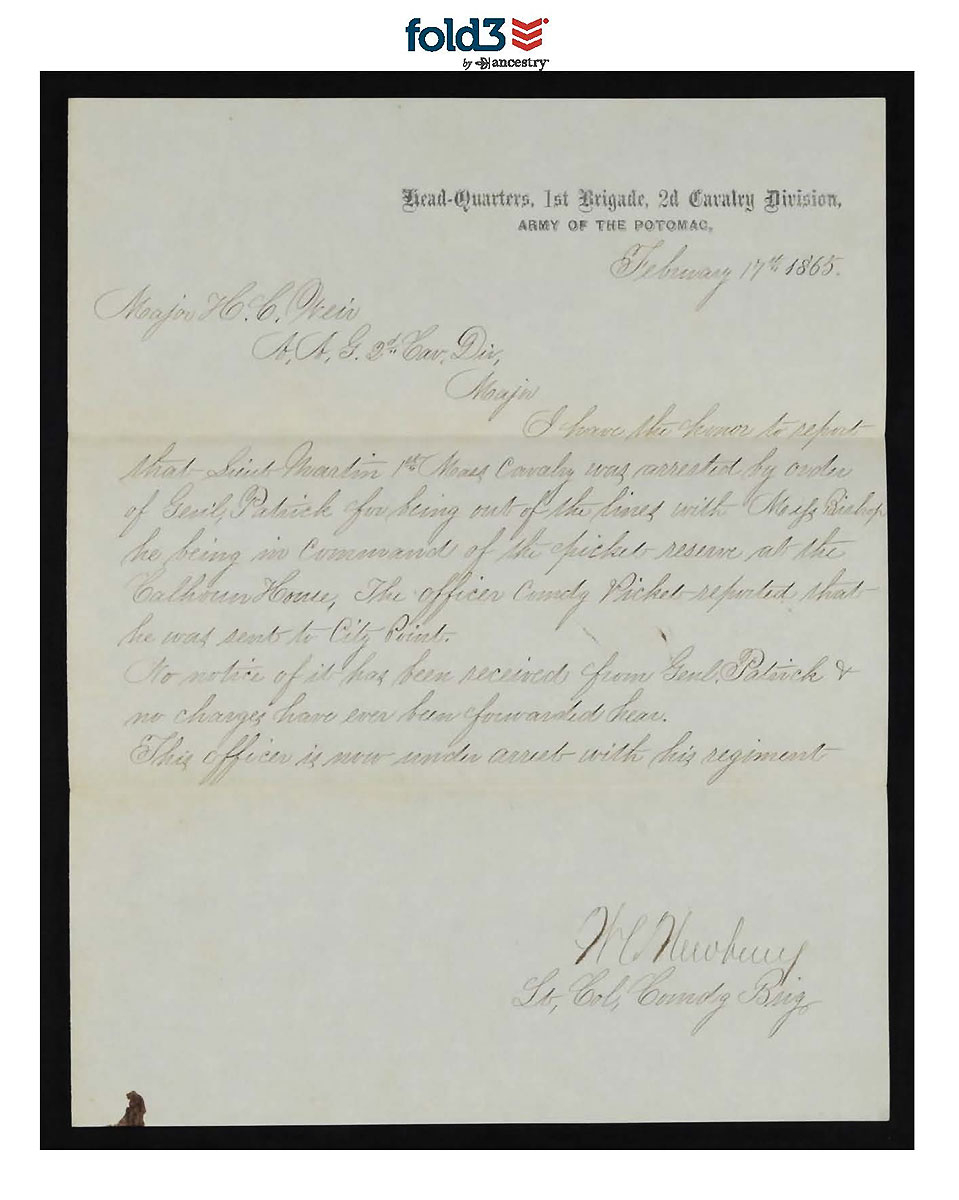 fold3
by ancestry
Head-Quarters, 1st Brigade, 2d Cavalry Division,
ARMY OF THE POTOMAC,
February 17th 1865.
Major H. C. Weir
A. A. G. 2d Cav. Div,
Major
I have the honor to report
that Lieut Martin 1st Mass Cavalry was arrested by order
of Genl, Patrick for being out of the lines with Miss Bishop
he being in command of the picket reserve at the
Calhoun House, The officer Comdg Picket reported that
he was sent to City Point.
No notice of it has been received from Genl. Patrick &
no charges have ever been forwarded hear.
This officer is now under arrest with his regiment
Lt, Col, Comdg Brig